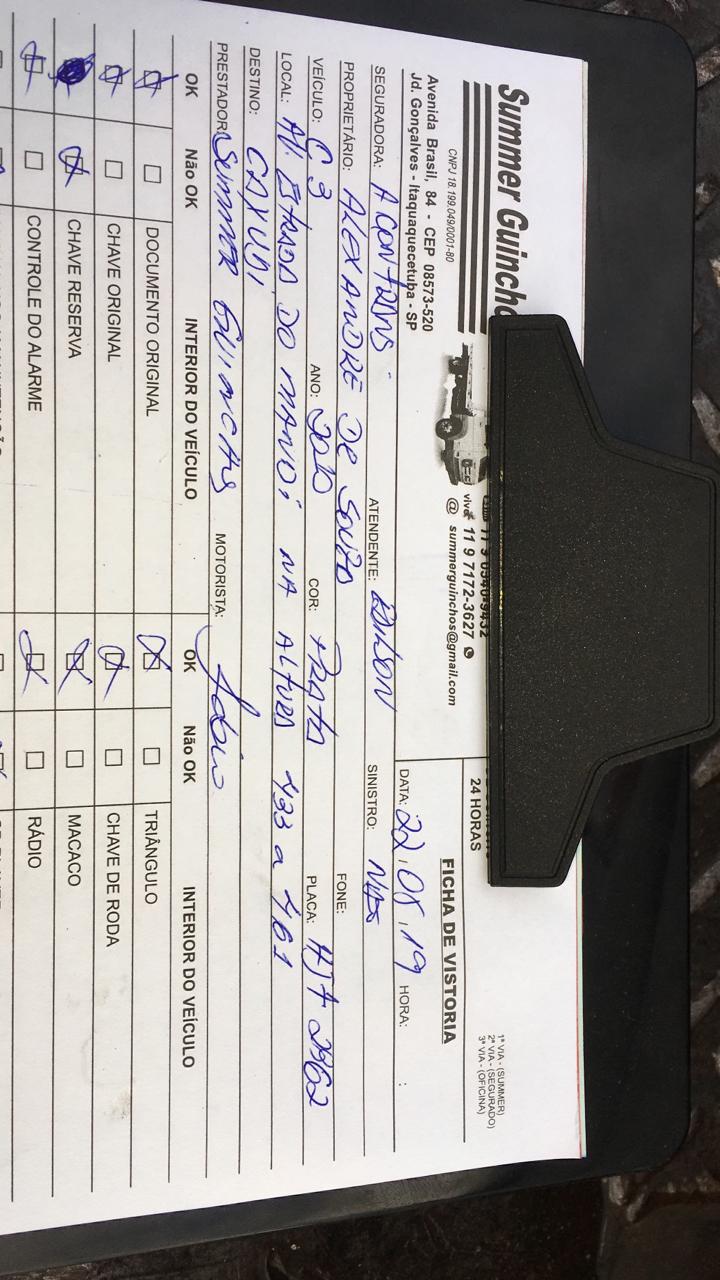 Summer Guinchos
CNPJ 18.199.049/0001-80
Avenida Brasil, 84 - CEP 08573-520
Jd. Gonçalves - Itaquaquecetuba - SP
11 9 7172-3627
@ summerguinchos@gmail.com
24 HORAS
1ª VIA - (SUMMER)
2ª VIA - (SEGURADO)
3ª VIA - (OFICINA)
FICHA DE VISTORIA
DATA: 22.05.19 HORA: :
SEGURADORA: ACONTRANS ATENDENTE: SINISTRO:
PROPRIETÁRIO: ALEXANDRE DE SOUZA FONE:
VEÍCULO: C3 ANO: 2010 COR: PRATA PLACA: HJA 2962
LOCAL: AV. ESTRADA DO MANDI NA ALTURA 433 a 461
DESTINO: CAXUDI
PRESTADOR: SUMMER GUINCHOS MOTORISTA:
OK Não OK INTERIOR DO VEÍCULO OK Não OK INTERIOR DO VEÍCULO
DOCUMENTO ORIGINAL TRIÂNGULO
CHAVE ORIGINAL CHAVE DE RODA
CHAVE RESERVA MACACO
CONTROLE DO ALARME RÁDIO